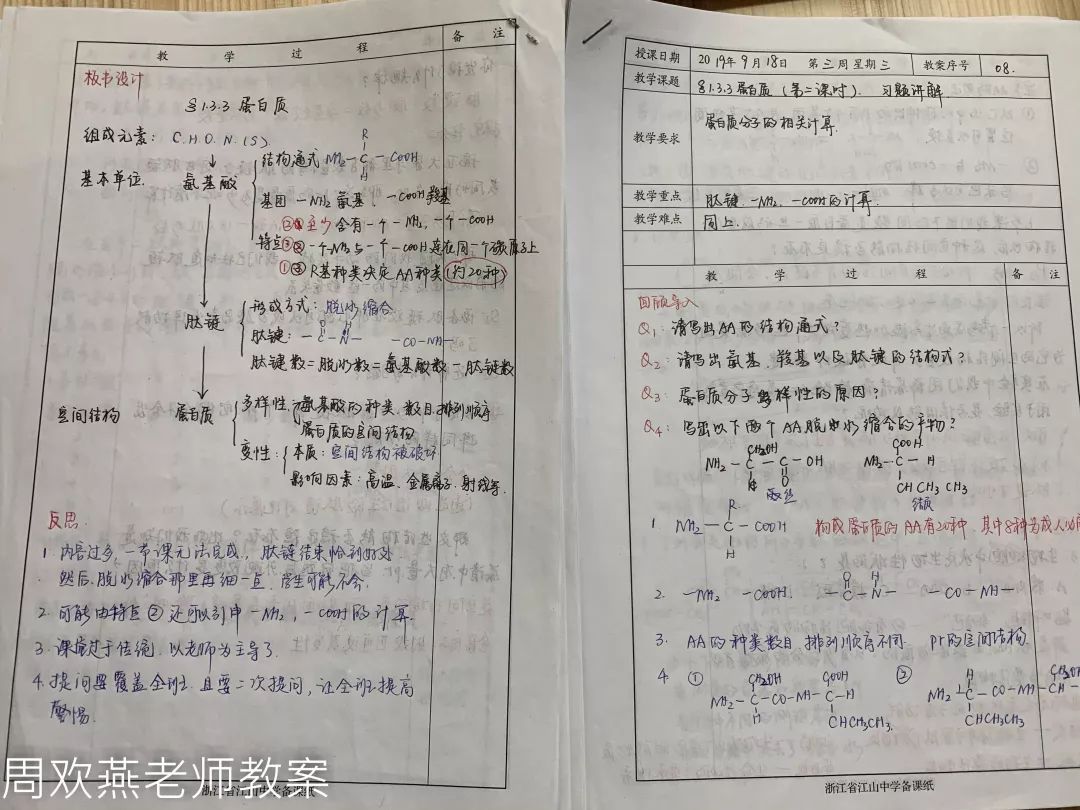 教 学 过 程
备 注
板书设计
§1.3.3 蛋白质
组成元素: C.H.O.N.(S)
基本单位: 氨基酸
结构通式
R
NH₂-C-COOH
H
基团 -NH₂ 氨基、-COOH 羧基
特点
② 至少含有一个-NH₂, 一个-COOH
③ 一个-NH₂与一个-COOH连在同一个碳原子上
① R基种类决定AA种类 (约20种)
肽键
形成方式: 脱水缩合
肽键:
O H
-C-N- -CO-NH-
肽键数=脱水数=氨基酸数-肽链数
空间结构 蛋白质
多样性: 氨基酸的种类、数目、排列顺序
蛋白质的空间结构
变性: 本质: 空间结构被破坏
影响因素: 高温、金属离子、射线等.
反思:
1. 内容过多,一节课无法完成,肽链结束恰到好处
然后,脱水缩合那里再细一点,学生可能不会.
2. 可能由特点②还可以引申-NH₂,-COOH的计算.
3. 课堂过于传统,以老师为主导了.
4. 提问要覆盖全班,且要二次提问,让全班提高
警惕.
周欢燕老师教案
浙江省江山中学备课纸
授课日期 2019年9月18日 第三周星期三 教案序号 08.
教学课题 §1.3.3 蛋白质 (第二课时). 习题讲解
教学要求 蛋白质分子的相关计算.
教学重点 肽键、-NH₂、-COOH的计算.
教学难点 同上.
教 学 过 程
备 注
回顾导入
Q₁: 请写出AA的结构通式?
Q₂: 请写出氨基、羧基以及肽键的结构式?
Q₃: 蛋白质分子多样性的原因?
Q₄: 写出以下两个AA脱水缩合的产物?
CH₂OH COOH
NH₂-C-C-OH NH₂-C-H
H O CHCH₃CH₃
R
1. NH₂-C-COOH 构成蛋白质的AA有20种,其中8种为成人必
H
O H
2. -NH₂ -COOH. -C-N- -CO-NH-
3. AA的种类数目、排列顺序不同. pr的空间结构.
4 ① CH₂OH COOH ② H CH₂OH
NH₂-C-CO-NH-C-H NH₂-C-CO-NH-CH-
H CHCH₃CH₃. CHCH₃CH₃
浙江省江山中学备课纸